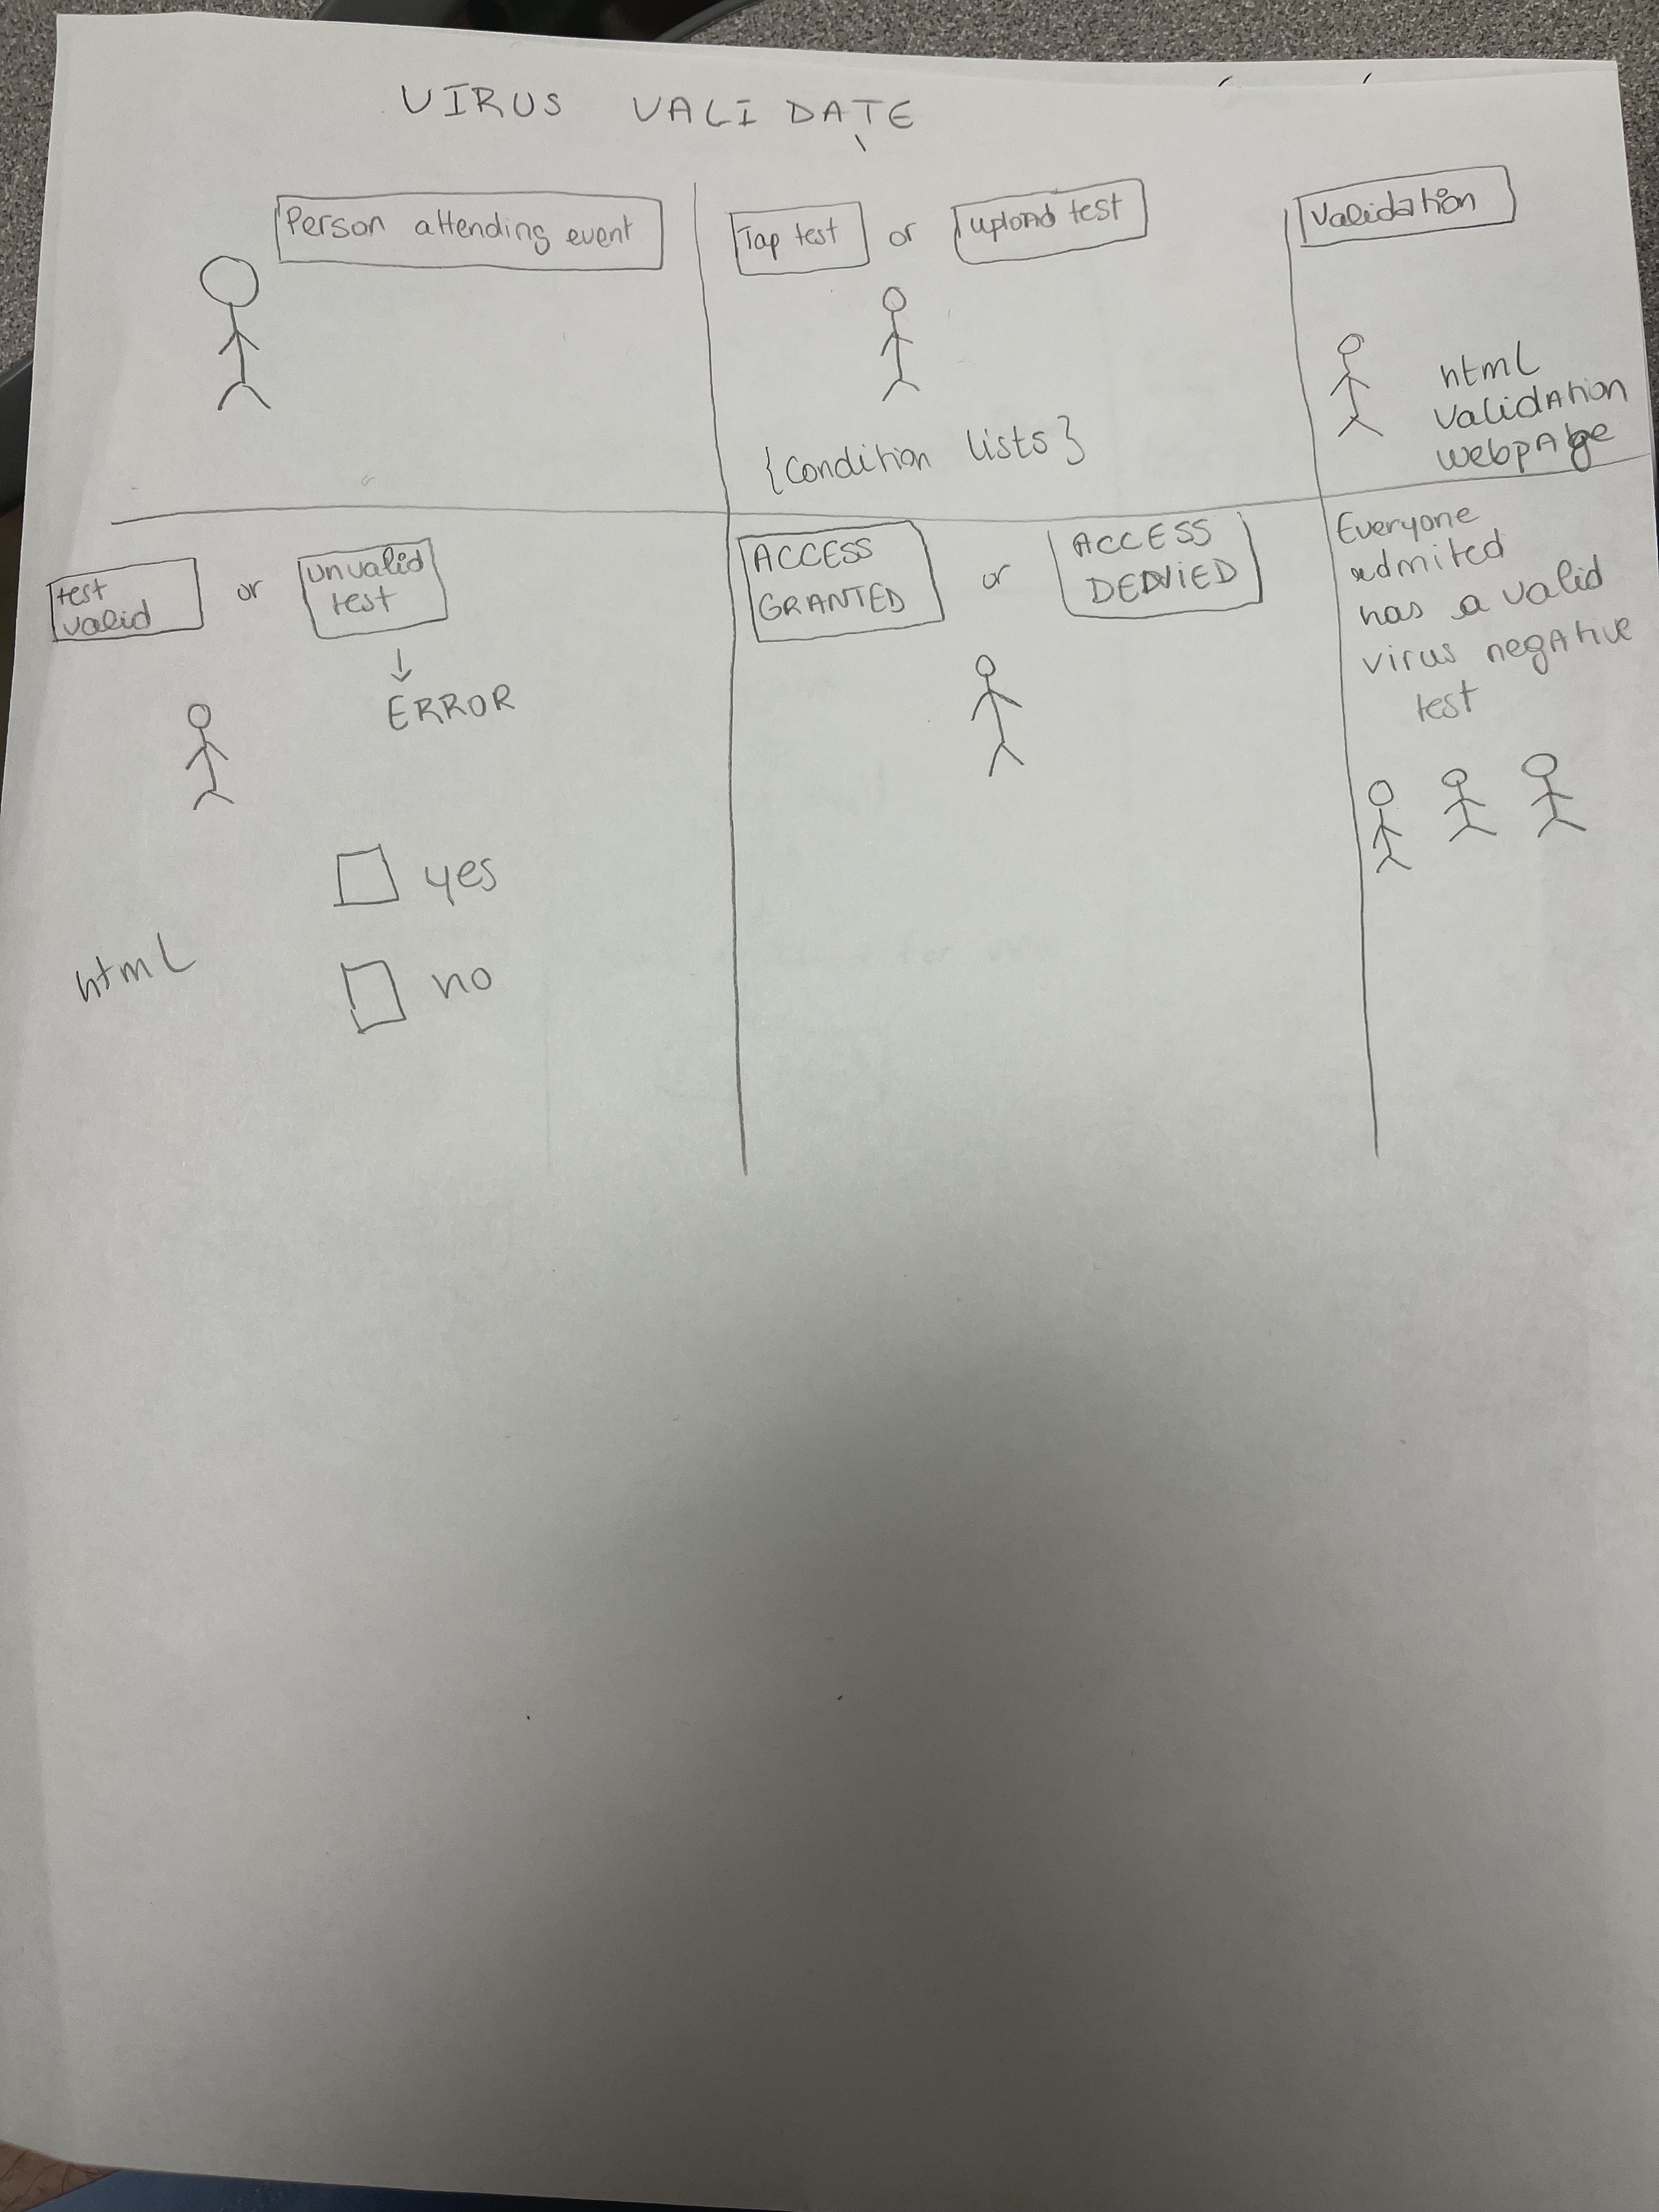 VIRUS VALIDATE
Person attending event
Tap test or upload test
{Condition lists}
Validation
html
validation
webpage
test
valid
or
unvalid
test
ERROR
yes
no
html
ACCESS
GRANTED
or
ACCESS
DENIED
Everyone
admited
has a valid
virus negative
test